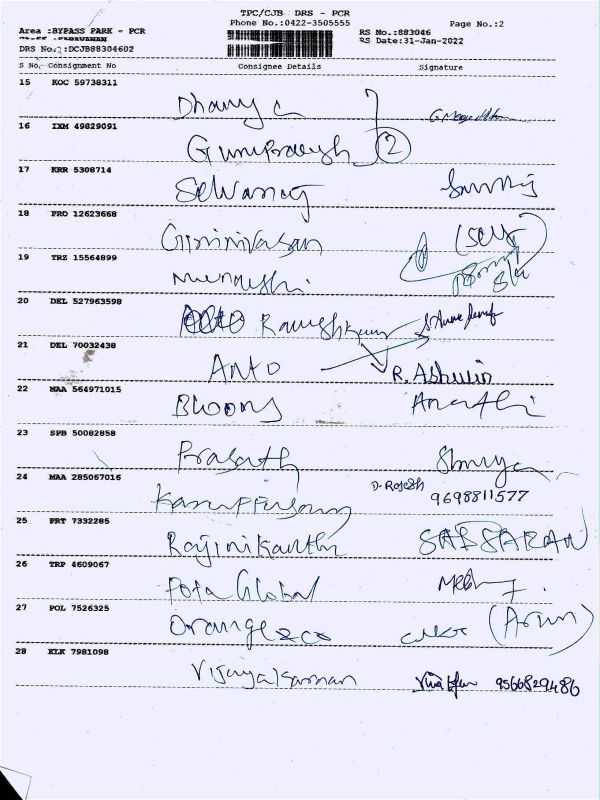 TPC/CJB DRS - PCR
Area :BYPASS PARK - PCR Phone No.:0422-3505555 RS No.:883046 Page No.:2
DRS No.:DCJB88304602 RS Date:31-Jan-2022
S No. Consignment No Consignee Details Signature
15 KOC 59738311
Dhanya
16 IXM 49829091
Guruprakash 2
17 KRR 5308714
Selvaraj
18 PRO 12623668
Girinivasan
19 TRZ 15564899
Meenakshi
20 DEL 527963598
Rameshkumar
21 DEL 70032438
Anto R. Ashwin
22 MAA 564971015
Blooms Anathi
23 SPB 50082858
Prasath
24 MAA 285067016
D. Rajesh
9698811577
25 PRT 7332285
Rajinikanth SAISARAN
26 TRP 4609067
Fota Global
27 POL 7526325
Orange & co (Arun)
28 KLK 7981098
Vijayalksmnan 9566829486